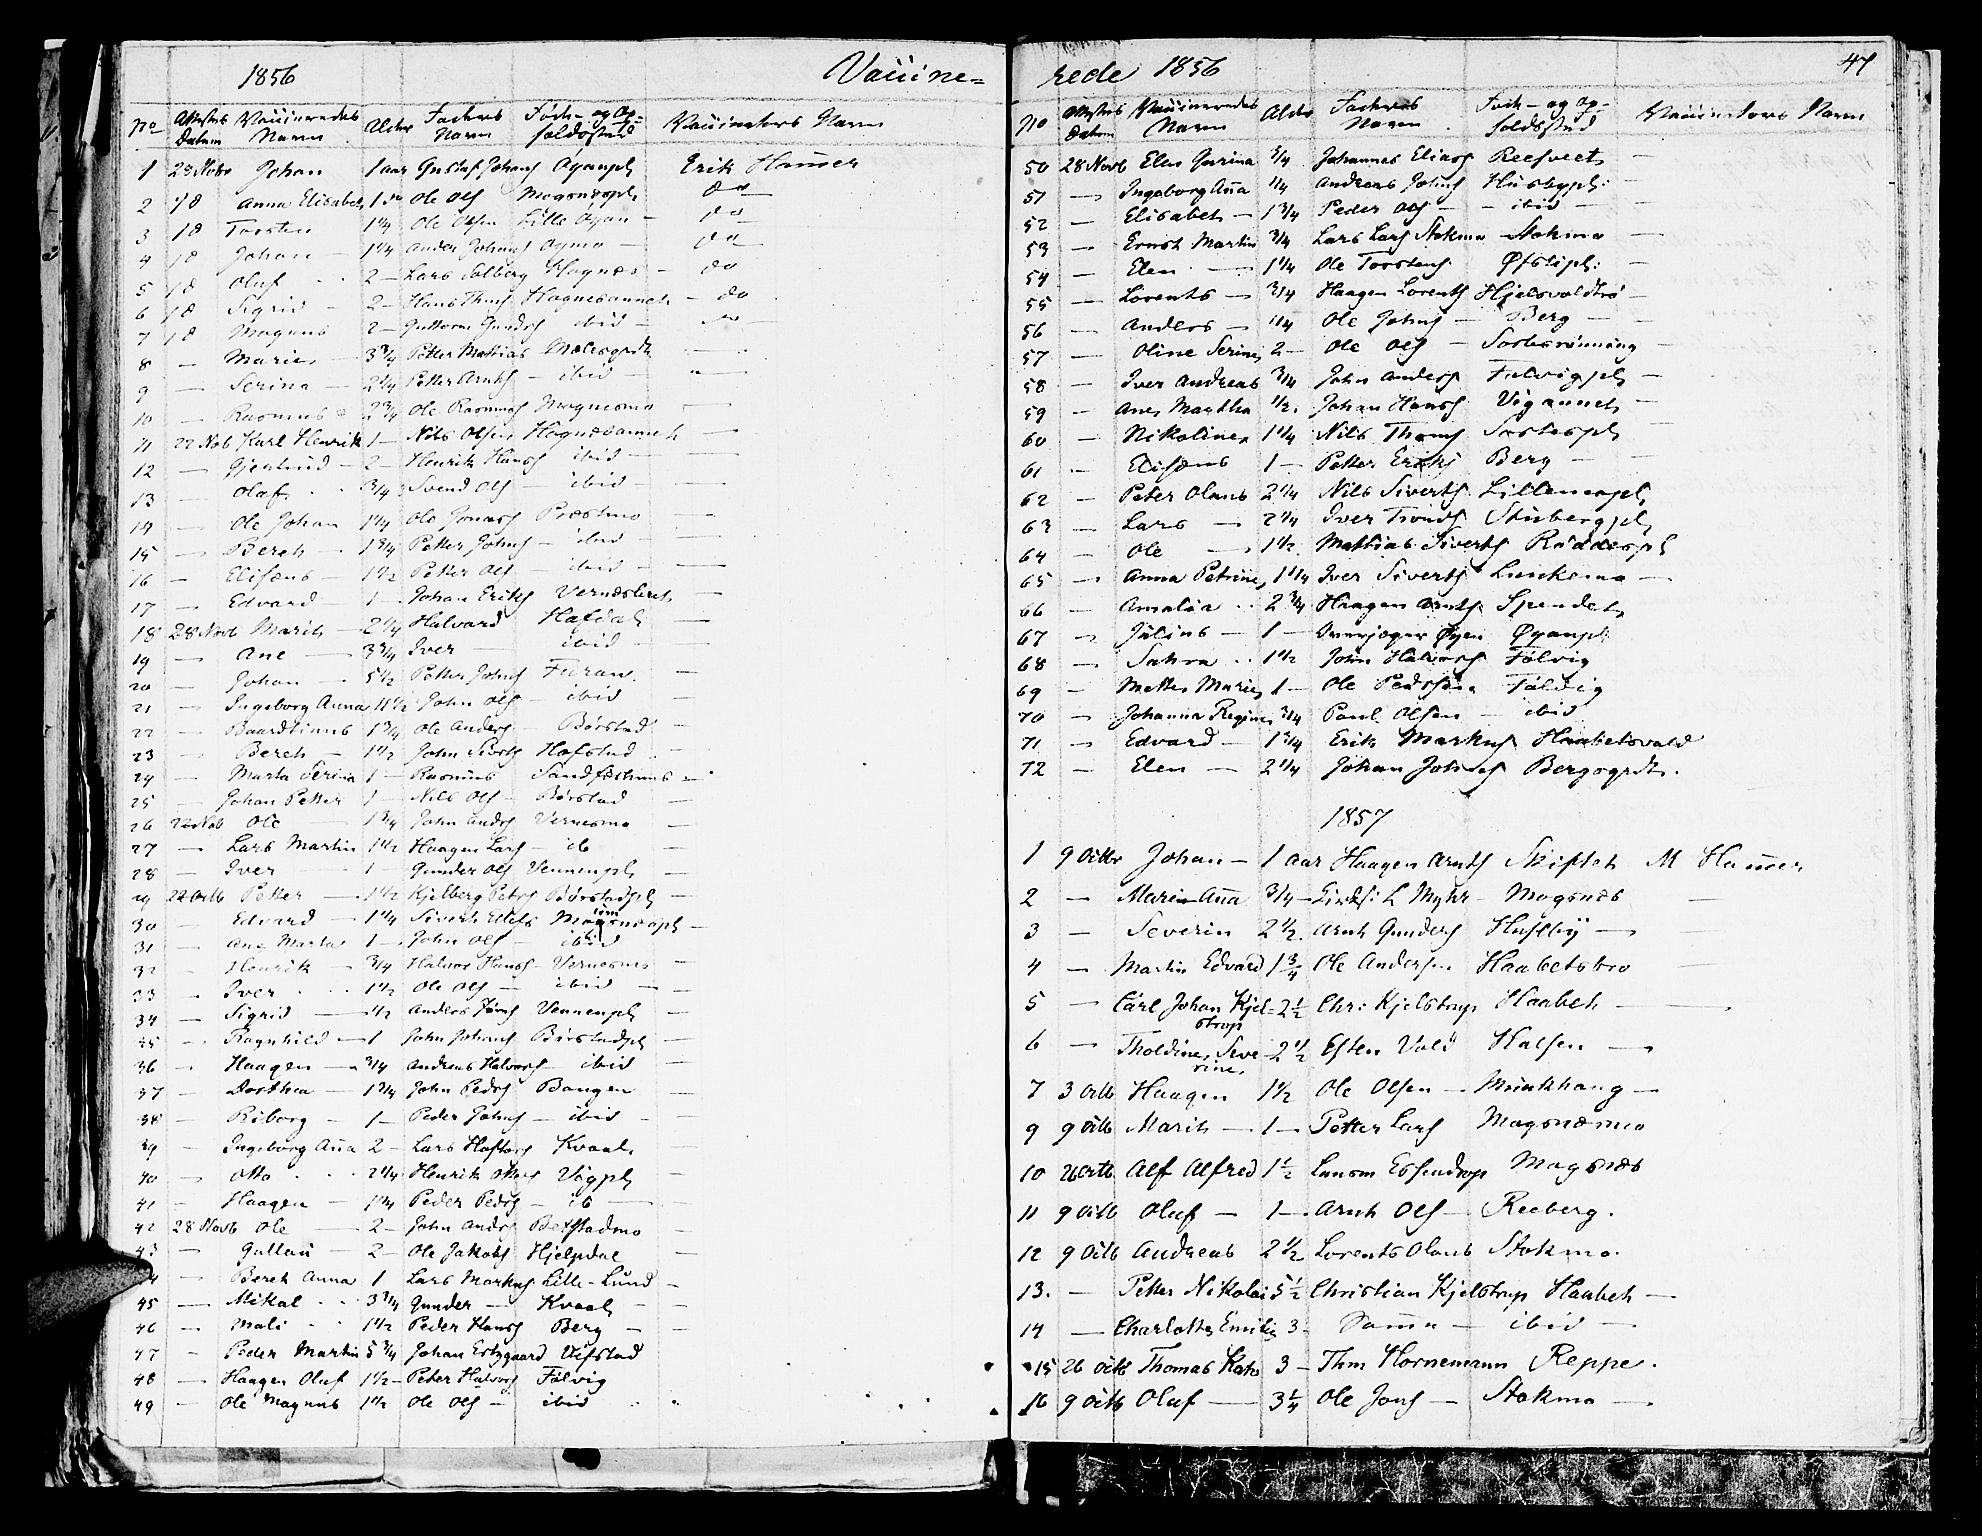 1856 Vaccine=
No Attestens Datum Vaccineredes Navn Alder Faderens Navn Føde- og Op- holdssted Vaccinators Navn
1 28 Novb Johan 1 aar Gustaf Johans Øyanpl Erik Hammer
2 18 Anna Elisabeth Ole Ols Mogsnespl do
3 18 Torsten 1 1/4 Ole Olsen Lille Øyan - do
4 18 Johan - 1 1/4 Anders Johans Øymo - do
5 18 Oluf - 2 - Lars Solberg Hognes - do
6 18 Sigrid - 2 - Hans Thms Hognesaunet - do
7 18 Magnus 2 - Guttorm Gunders ibid - do
8 - Marie 3 3/4 Petter Mathias Mælesgrdt -
9 - Serina - 2 1/4 Petter Arnts - ibid - -
10 - Rasmus 2 3/4 Ole Rasmuss Mognesmo -
11 22 Nob Karl Henrik 1 - Nils Olsen Hognesaunet -
12 - Gjertrud - 2 - Henrik Hans ibid - -
13 - Olaf 3/4 Svend Ols - ibid - -
14 - Ole Johan 1 1/4 Ole Jonass Præstmo -
15 - Bereth - 1 3/4 Petter Johns - ibid - -
16 - Elisæus - 1 1/2 Petter Ols ibid - -
17 - Edvard 1 - Johan Eriks Vernesleret -
18 28 Novb Marith - 2 1/4 Halvard Hafdal -
19 - Ane - 3 3/4 Iver - ibid -
20 - Johan - 5 1/2 Petter Johns Furan -
21 - Ingeborg Anna 11 1/2 John Ols - ibid -
22 - Baardtinus 1 3/4 Ole Anders - Børstad -
23 - Bereth - 1 1/2 John Siverts Hofstad -
24 - Marta Serina 1 - Rasmus Sandfærhus -
25 - Johan Petter 1 - Nils Ols - Børstad -
26 22 Nob Ole 1 3/4 John Anders Vernesmo -
27 - Lars Martin 1 1/2 Haagen Lars - ib -
28 - Iver - 1 - Gunder Ols Vennenpl -
29 22 Octb Petter - 1 1/2 Kjelberg Peters Børstadpl -
30 - Edvard - 1 1/4 Sivert Ellefs Mogsnespl -
31 - Ane Marta 1 - John Ols - ibid
32 - Henrik - 3/4 Halvor Hans - Vernesmo -
33 - Iver 1 1/2 Ole Ols - ibid -
34 - Sigrid - 1/2 Anders Jørns Vennenpl -
35 - Ragnhild - 1 John Johans Børstadpl -
36 - Haagen - 3/4 Andreas Halvors - ibid -
37 - Dorthea - 1 3/4 John Peders Bangen -
38 - Riborg - 1 - Peder Johns - ibid -
39 - Ingeborg Anna 2 - Lars Haftors Kvaal -
40 - Otto 2 1/4 Henrik Ottos Vigpl -
41 - Haagen - 1 1/4 Peder Peders - ib -
42 28 Novb Ole - 2 - John Anders Børstadmo
43 - Gullau - 2 - Ole Jakobs Hjelpdal -
- Bereth Anna 1 Lars Markus Lille-Lund -
45 - Mikal 3 3/4 Gunder - Kvaal - -
46 - Mali 1 1/2 Peder Hans Berg - -
47 - Peder Martin 5 3/4 Johan Erbygaard Vifstad
48 - Haagen Oluf 1 1/2 - Peter Halvors Følvig
49 - Ole Magnus 1 1/2 Ole Ols - ibid
rede 1856 47
No Attestens Datum Vaccineredes Navn Alder Faderens Navn Føde- og Op- holdssted Vaccinators Navn
50 28 Novb Elen Gurina 3/4 Johannes Elias Reesveet -
51 - Ingeborg Anna 1/4 Andreas Johns Husbypl: -
52 - Elisabeth - 1 3/4 Peder Ols - ibid -
53 - Ernst Martin 3/4 Lars Lars Stokmo Stokmo -
54 - Elen - 1 1/4 Ole Torstens Øfstipl: -
55 - Lorents - 3/4 Haagen Lorents Hjelsvoldtrø -
56 - Anders - 1/4 Ole Johns - Berg -
57 - Oline Serine 2 - Ole Ols - Sostesrønning -
58 - Iver Andreas 3/4 John Anders Følvigpl -
59 - Ane Martha 1/2 Johan Hans Vigaunet -
60 - Nikoline 1 1/4 Nils Thoms Sostespl -
61 - Elisæus 1 - Petter Eriks Berg -
62 - Peter Olaus 2 1/4 Nils Siverts Lillemopl
63 - Lars - 2 1/4 Iver Tronds Stubergpl
64 - Ole - 1 1/2 Mathias Siverts Røddespl
65 - Anna Petrine 1 1/4 Iver Siverts Lunkemo -
66 - Amalia 2 3/4 Haagen Arnts Spendet
67 - Julius - 1 - Overjæger Øyen Øyanpl:
68 - Sahra 1 1/2 John Halvors Følvig
69 - Mette Marie 1 - Ole Pedersen Følvig
70 - Johanna Regine 3/4 Paul Olsen - ibid
71 - Edvard - 1 3/4 Erik Markus Haabetsvald
72 - Elen - 2 1/4 Johan Johns Bergsgrdt.
1857
1 9 Octbr Johan - 1 aar Haagen Arnts Skiftet M Hammer
2 - Maren Anna 3/4 - L Myhr - Mogsnes -
3 - Severin 2 1/2 Arnt Gunders Husbÿ -
4 - Martin Edvard 1 3/4 Ole Andersen Haabetstrø -
5 - Carl Johan Kjel- strup 2 1/2 Chr: Kjelstrup Haabet -
6 - Tholdine Seve- rine 2 1/2 Esten Vold Halsen -
7 3 Octb Haagen 1 1/2 Ole Olsen - Munkhaug -
9 9 Octb Marith - 1 - Petter Lars Mogsnesmo
10 26 Octb Alf Alfred 1 1/2 Lansm Essendrop Mogsnes
11 9 Octb Oluf - 1 - Arnt Ols - Reeberg.
12 9 Octb Andreas 2 1/2 Lorents Olaus Stokmo.
13. - Petter Nikolai 5 1/2 Christian Kjelstrup Haabet -
14 - Charlotte Emilie 3 - Samme - ibid -
15 26 Octb Thomas Kahn 3 - Thm Hornemann Reppe.
16 9 Octb Oluf - 3 1/4 Ole Jons - Stokmo -